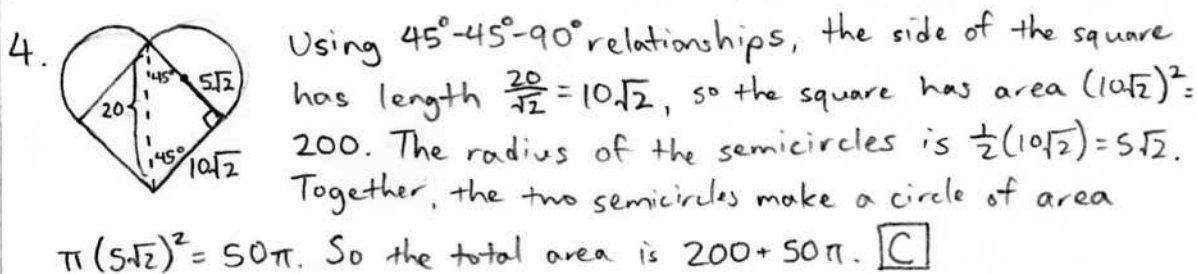 4.
Using 45°-45°-90° relationships, the side of the square
has length 20/√2 = 10√2, so the square has area (10√2)² =
200. The radius of the semicircles is ½(10√2) = 5√2.
Together, the two semicircles make a circle of area
π(5√2)² = 50π. So the total area is 200 + 50π. C
45°
5√2
20
45°
10√2